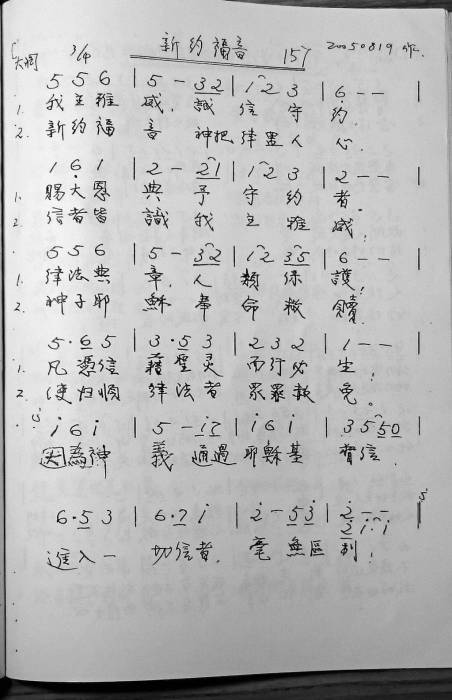 新約福音 157 20050819作.
C大調 3/4
5 5 6 | 5 - 3 2 | 1 2 3 | 6 - - |
1. 我主雅威, 誠信守約.
2. 新約福音 神把律置人心.
1 6 1 | 2 - 2 1 | 1 2 3 | 2 - - |
1. 賜大恩典予守約者.
2. 信者皆識我主雅威.
5 5 6 | 5 - 3 2 | 1 2 3 5 | 6 - - |
1. 律法典章, 人類保護!
2. 神子耶穌奉命救贖.
5 · 6 5 | 3 · 5 3 | 2 3 2 | 1 - - |
1. 凡憑信藉聖灵而行必生!
2. 使归順律法者眾罪救免。
i 6 i | 5 - i 2 | i 6 i | 3 5 5 0 |
因為神義通過耶穌基督信.
6 · 5 3 | 6 · 7 i | 2 - 5 3 | 2 - - 2 i i ‖
進入一切信者, 毫無區別!